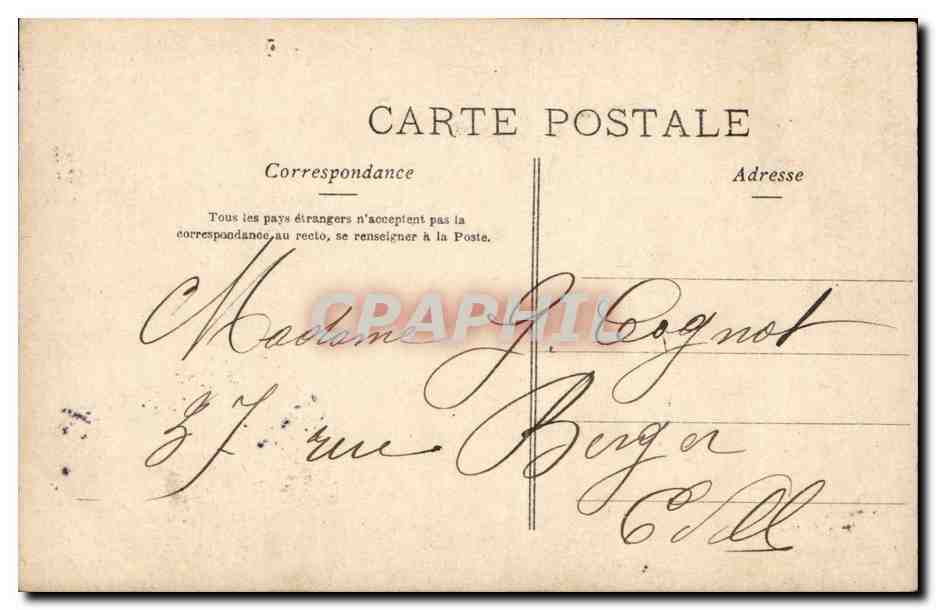 CARTE POSTALE
Correspondance
Adresse
Tous les pays étrangers n'acceptent pas la
correspondance au recto, se renseigner à la Poste.
CPAPHIL
Madame G. Cognot
37 rue Berger